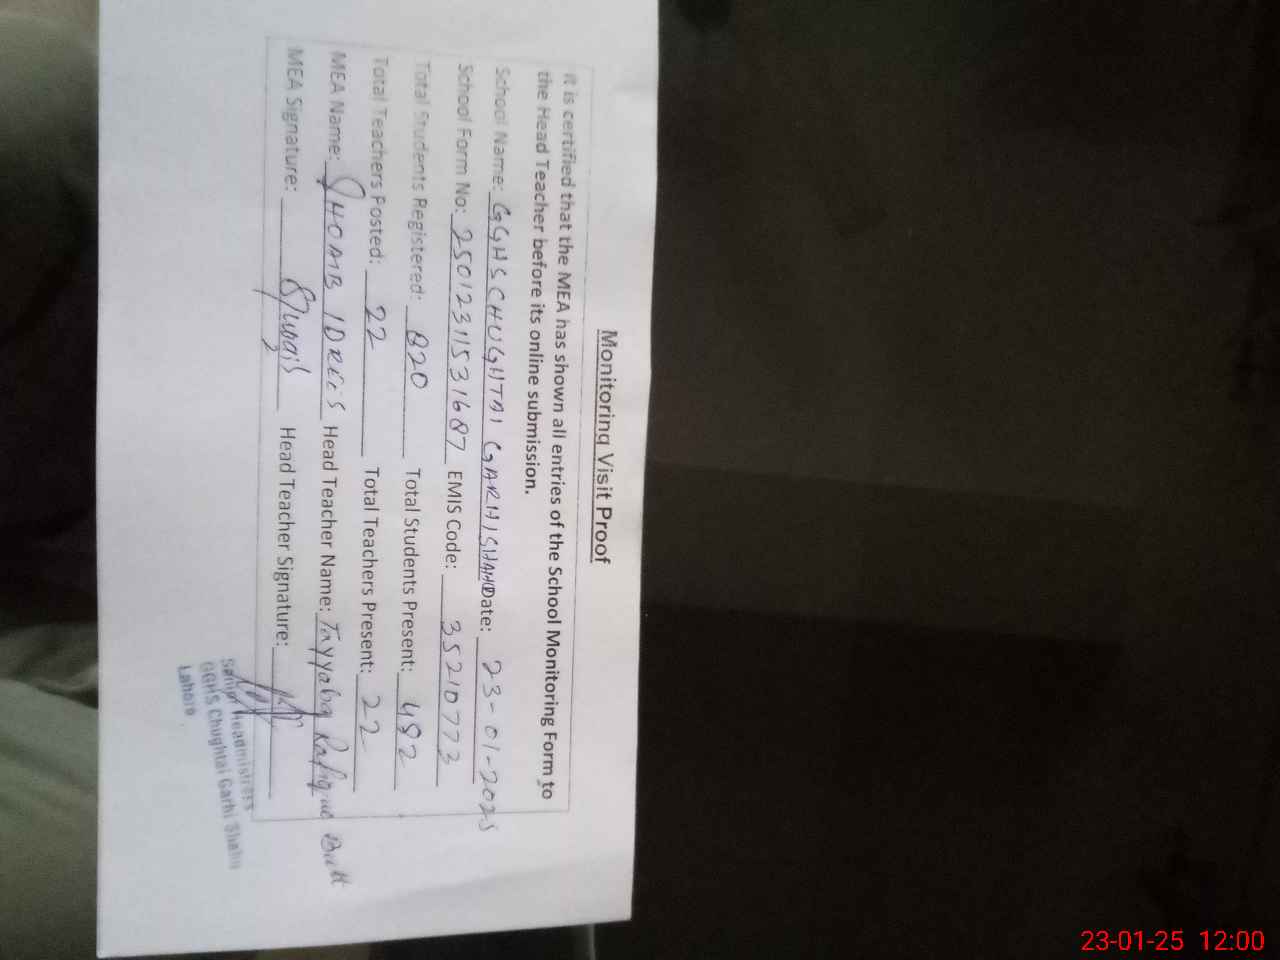 Monitoring Visit Proof
It is certified that the MEA has shown all entries of the School Monitoring Form to
the Head Teacher before its online submission.
School Name: GGHS CHUGHTAI GARHI SHAHU Date: 23-01-2025
School Form No: 250123115531687 EMIS Code: 35210773
Total Students Registered: 820 Total Students Present: 492
Total Teachers Posted: 22 Total Teachers Present: 22
MEA Name: SHOAIB IDREES Head Teacher Name: Tayyaba Rafique Butt
MEA Signature: Head Teacher Signature:
Senior Headmistress
GGHS Chughtai Garhi Shahu
Lahore
23-01-25 12:00